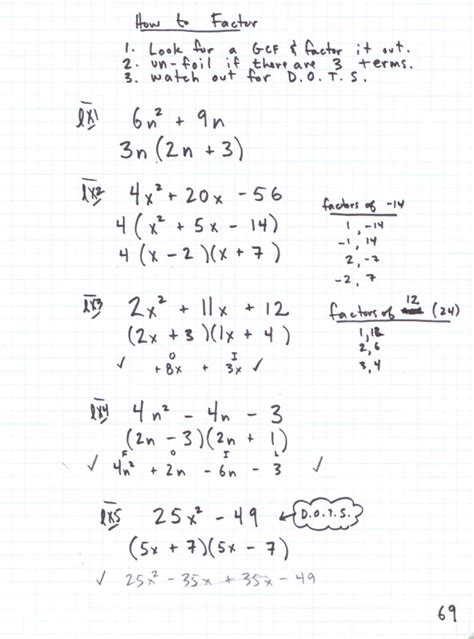 How to Factor
1. Look for a GCF & factor it out.
2. un-foil if there are 3 terms.
3. watch out for D.O.T.S.
ex1 6n² + 9n
3n(2n + 3)
ex2 4x² + 20x - 56
4(x² + 5x - 14)
4(x - 2)(x + 7)
factors of -14
1, -14
-1, 14
2, -7
-2, 7
ex3 2x² + 11x + 12
(2x + 3)(1x + 4)
O I
✓ +8x + 3x ✓
factors of 12 (24)
1, 12
2, 6
3, 4
ex4 4n² - 4n - 3
(2n - 3)(2n + 1)
F O I L
✓ 4n² + 2n - 6n - 3 ✓
ex5 25x² - 49 ← D.O.T.S.
(5x + 7)(5x - 7)
✓ 25x² - 35x + 35x - 49
69